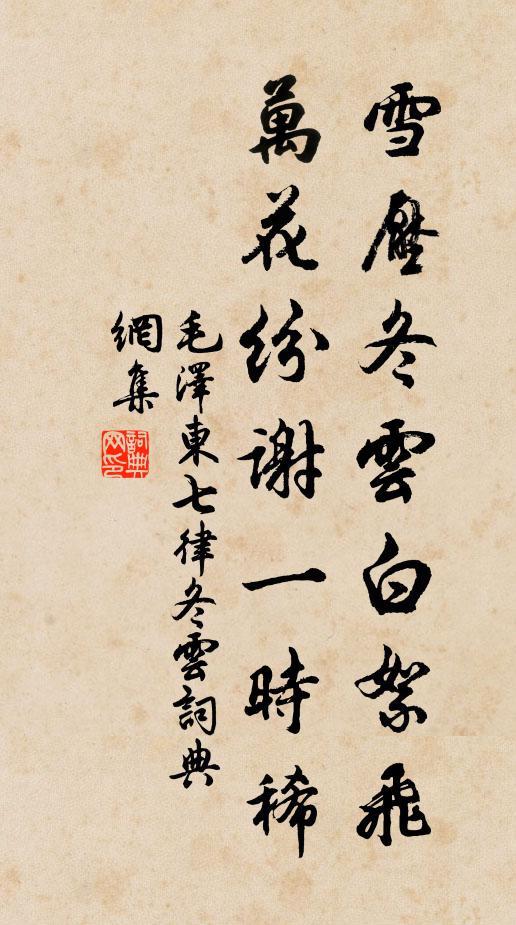 雪壓冬雲白絮飛
萬花紛謝一時稀
毛澤東七律冬雲詞典
網集
詞典
网印